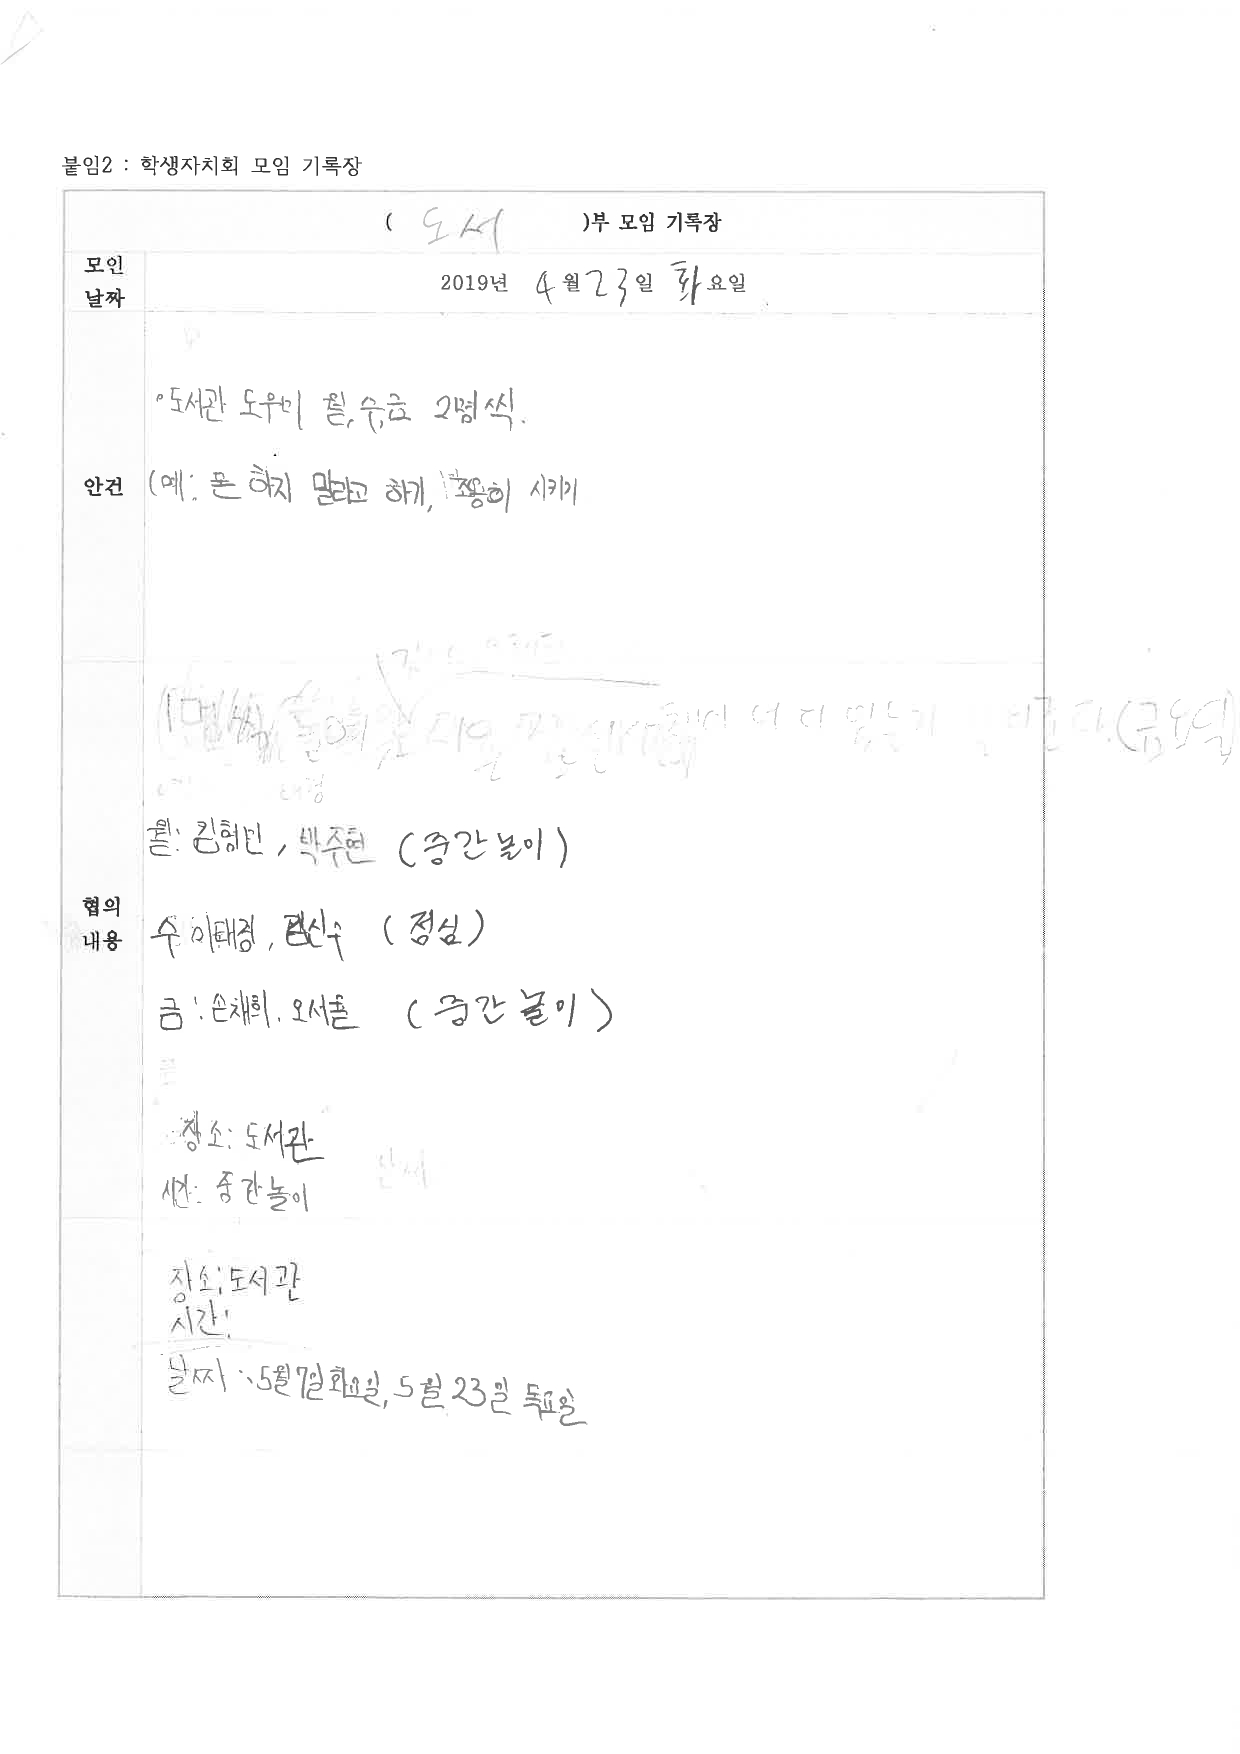 붙임2 : 학생자치회 모임 기록장
( 도서 )부 모임 기록장
모인 날짜
2019년 4월 23일 화요일
안건
◦도서관 도우미 월,수,금 2명씩.
(예: 폰 하지 말라고 하기, 조용히 시키기
(금요일)
태경
협의 내용
월: 김형민, 박주현 (중간놀이)
수 이태경, 신수 (점심)
금: 손채희, 오서율 (중간놀이)
장소: 도서관
날짜
시간: 중간놀이
장소: 도서관
시간:
날짜: 5월7일화요일, 5월 23일 목요일